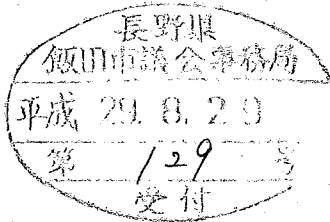 長野県
飯田市議会事務局
平成 29.8.29
第 129 号
受付